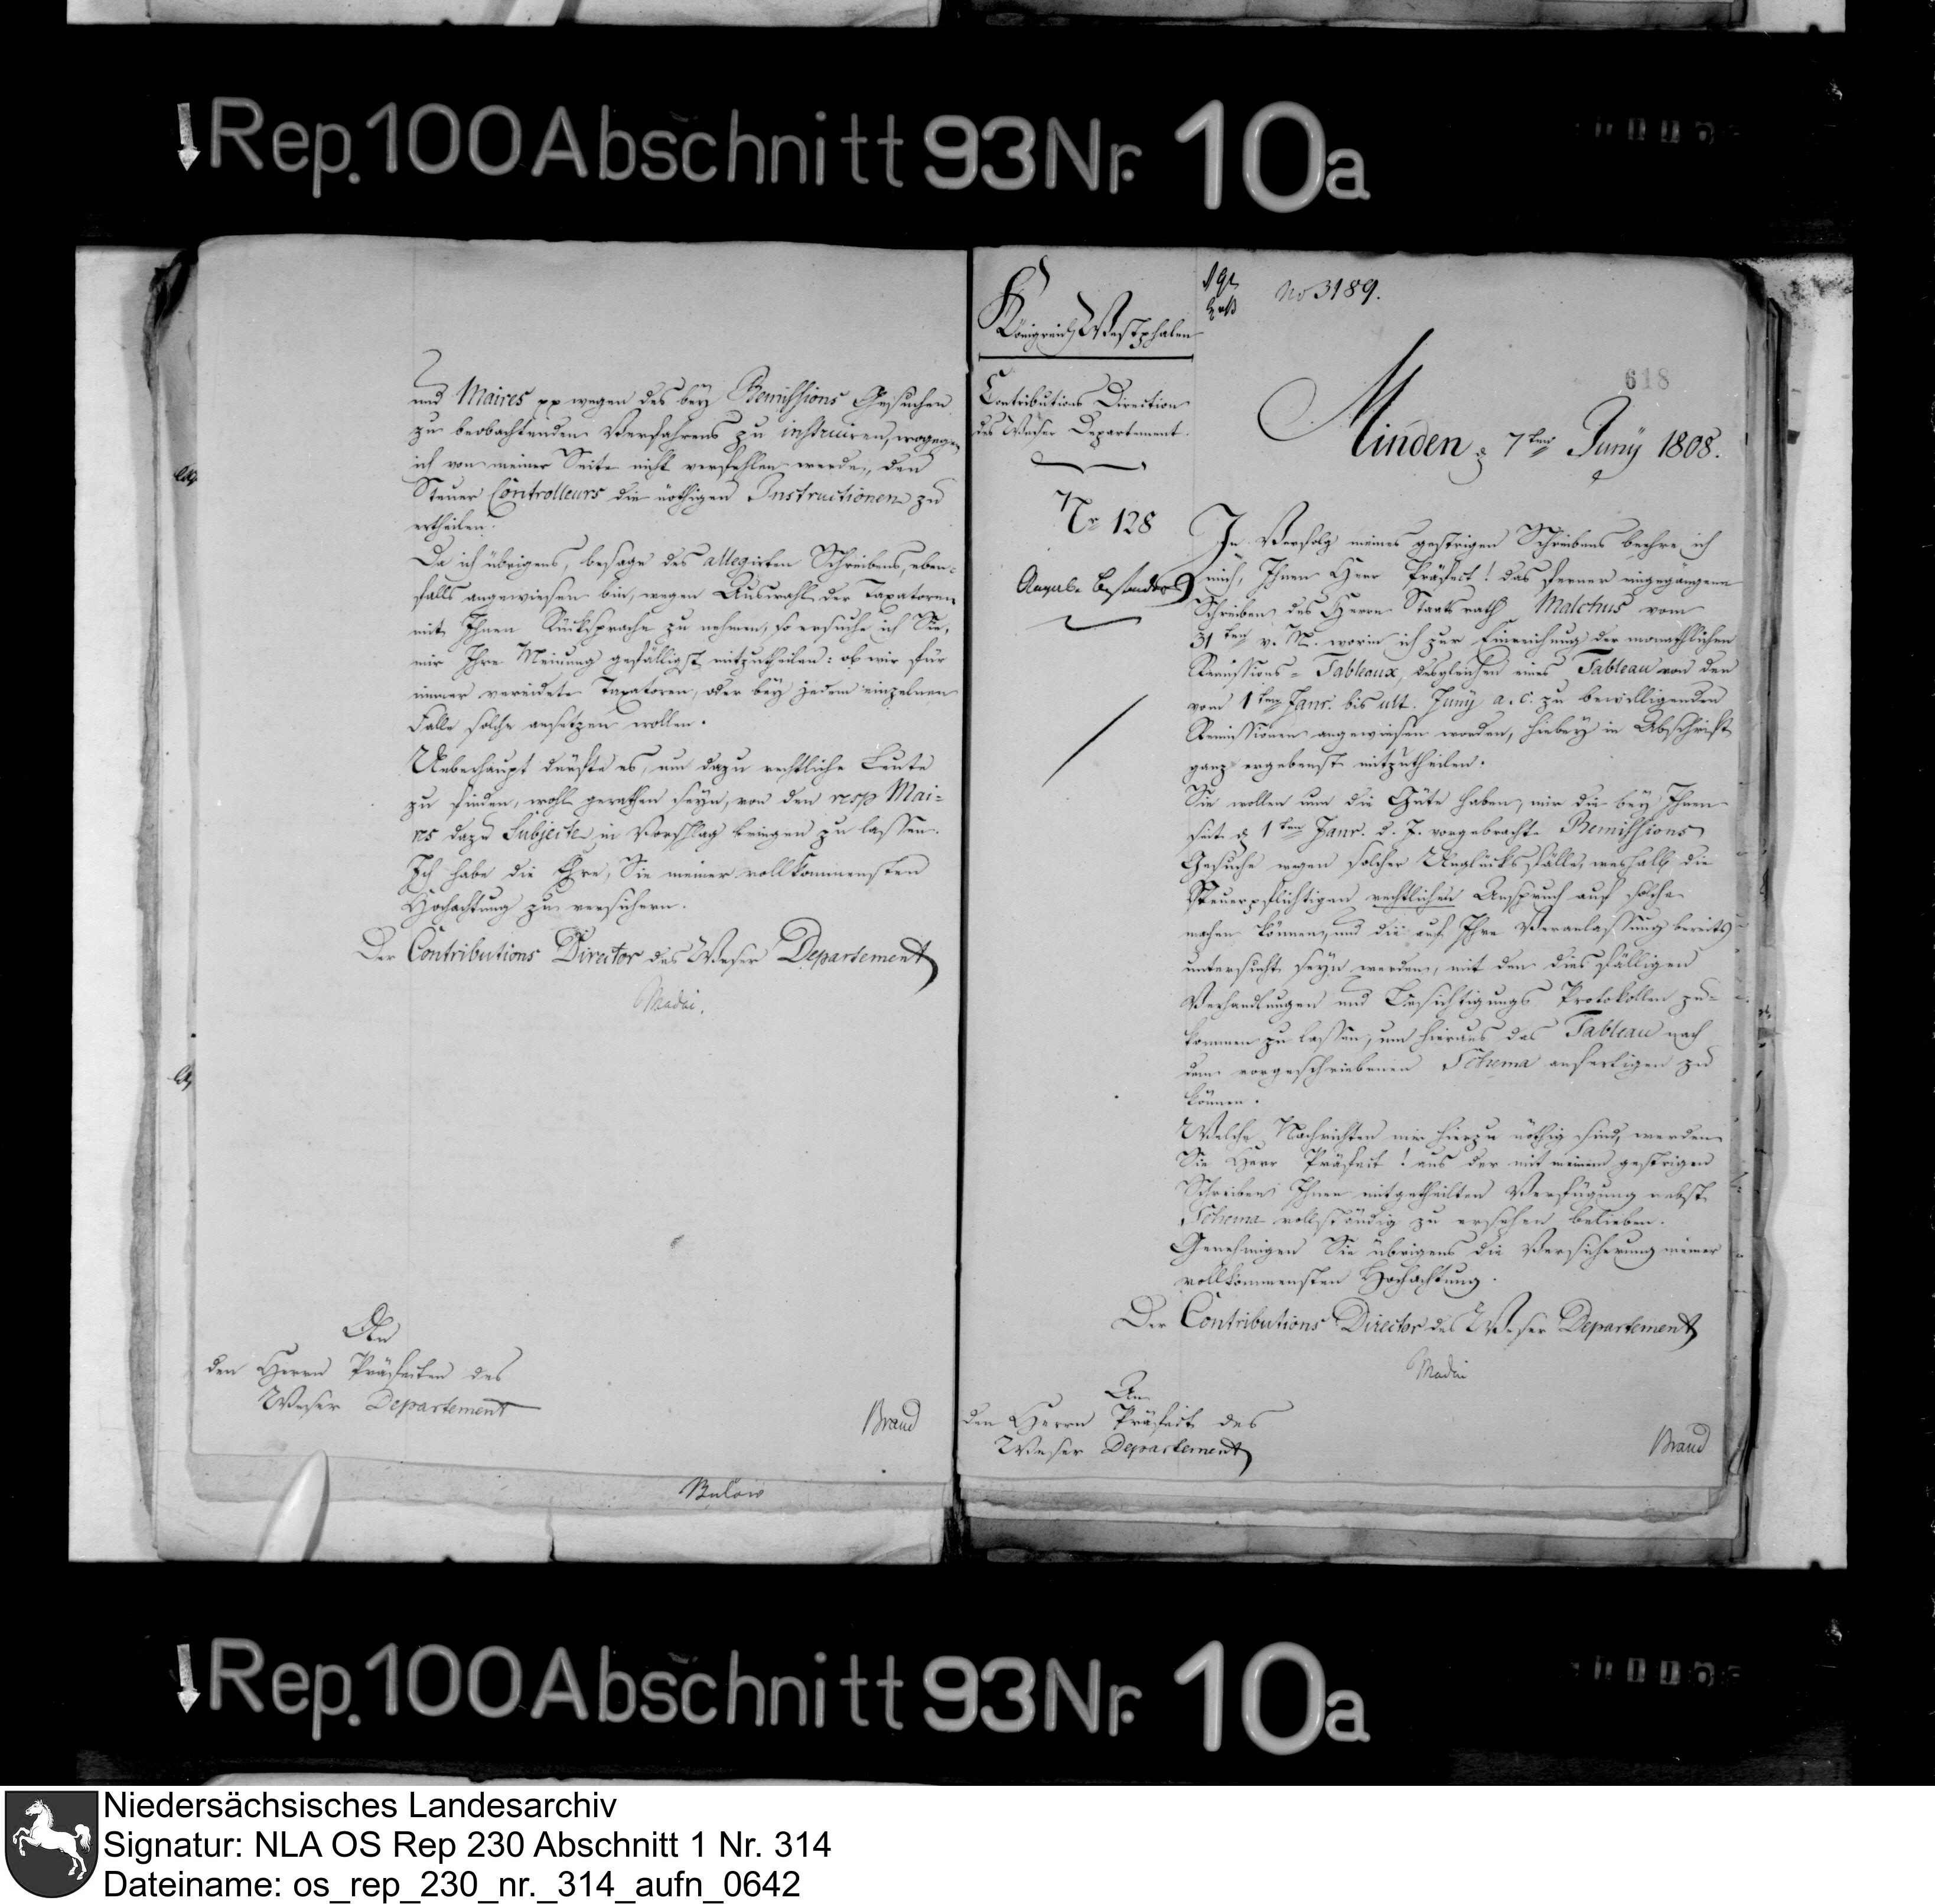 Rep. 100 Abschnitt 93 Nr. 10a
und Maires pp wegen des bey Remissions Gesuchen
zu beobachtenden Verfahrens zu instruiren, wogegen
ich von meiner Seite nicht verfehlen werde, den
Steuer Controlleurs die nöthigen Instructionen zu
ertheilen.
Da ich übrigens, besage des allegirten Schreibens, eben-
falls angewiesen bin, wegen Auswahl der Taxatoren
mit Ihnen Rücksprache zu nehmen, so ersuche ich Sie,
mir Ihre Meinung gefälligst mitzutheilen: ob wir für
immer vereidete Taxatoren, oder bey jedem einzelnen
Falle solche ansetzen wollen.
Ueberhaupt dürfte es, um dazu rechtliche Leute
zu finden, wohl gerathen seyn, von den resp Mai-
res dazu Subjecte in Vorschlag bringen zu lassen.
Ich habe die Ehre, Sie meiner vollkommensten
Hochachtung zu versichern.
Der Contributions Director des Weser Departement
Madai.
An
den Herrn Präfecten des
Weser Departement
Braud
Bulow
Königreich Westphalen
No 3189.
618
Contributions Direction
des Weser Departement.
Minden d 7ten Juny 1808.
Nr 128
In Verfolg meines gestrigen Schreibens beehre ich
mich, Ihnen Herr Präfect! das ferner eingegangene
Schreiben des Herrn Staatsrath Malchus vom
31ten v. M. worin ich zur Einreichung der monathlichen
Remissions-Tableaux, desgleichen eines Tableau von den
vom 1ten Janr. bis ult. Juny a. c. zu bewilligenden
Remissionen angewiesen worden, hiebey in Abschrift
ganz ergebenst mitzutheilen.
Sie wollen nun die Güte haben, mir die bey Ihnen
seit d 1ten Janr. d. J. vorgebrachte Remissions
Gesuche wegen solcher Unglücksfälle, weshalb die
Steuerpflichtigen rechtlichen Anspruch auf solche
machen können, und die auf Ihre Veranlassung bereits
untersucht seyn werden, mit den dies fälligen
Verhandlungen und Besichtigungs Protokollen zu-
kommen zu lassen, um hieraus das Tableau nach
dem vorgeschriebenen Schema anfertigen zu
können.
Welche Nachrichten mir hierzu nöthig sind, werden
Sie Herr Präfect! aus der mit meinem gestrigen
Schreiben Ihnen mitgetheilten Verfügung nebst
Schema vollständig zu ersehen belieben.
Genehmigen Sie übrigens die Versicherung meiner
vollkommensten Hochachtung.
Der Contributions Director des Weser Departement
Madai
An
den Herrn Präfect des
Weser Departement
Braud
Rep. 100 Abschnitt 93 Nr. 10a
Niedersächsisches Landesarchiv
Signatur: NLA OS Rep 230 Abschnitt 1 Nr. 314
Dateiname: os_rep_230_nr._314_aufn_0642